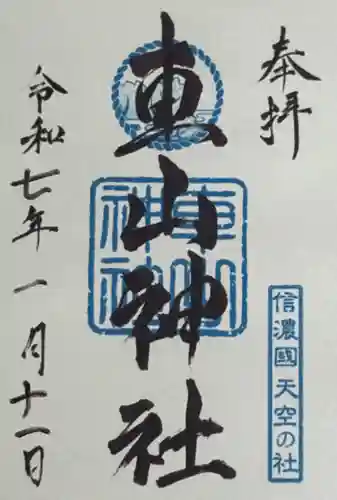 奉拝
信濃國天空の社
車山神社
車山神社
令和七年一月十一日